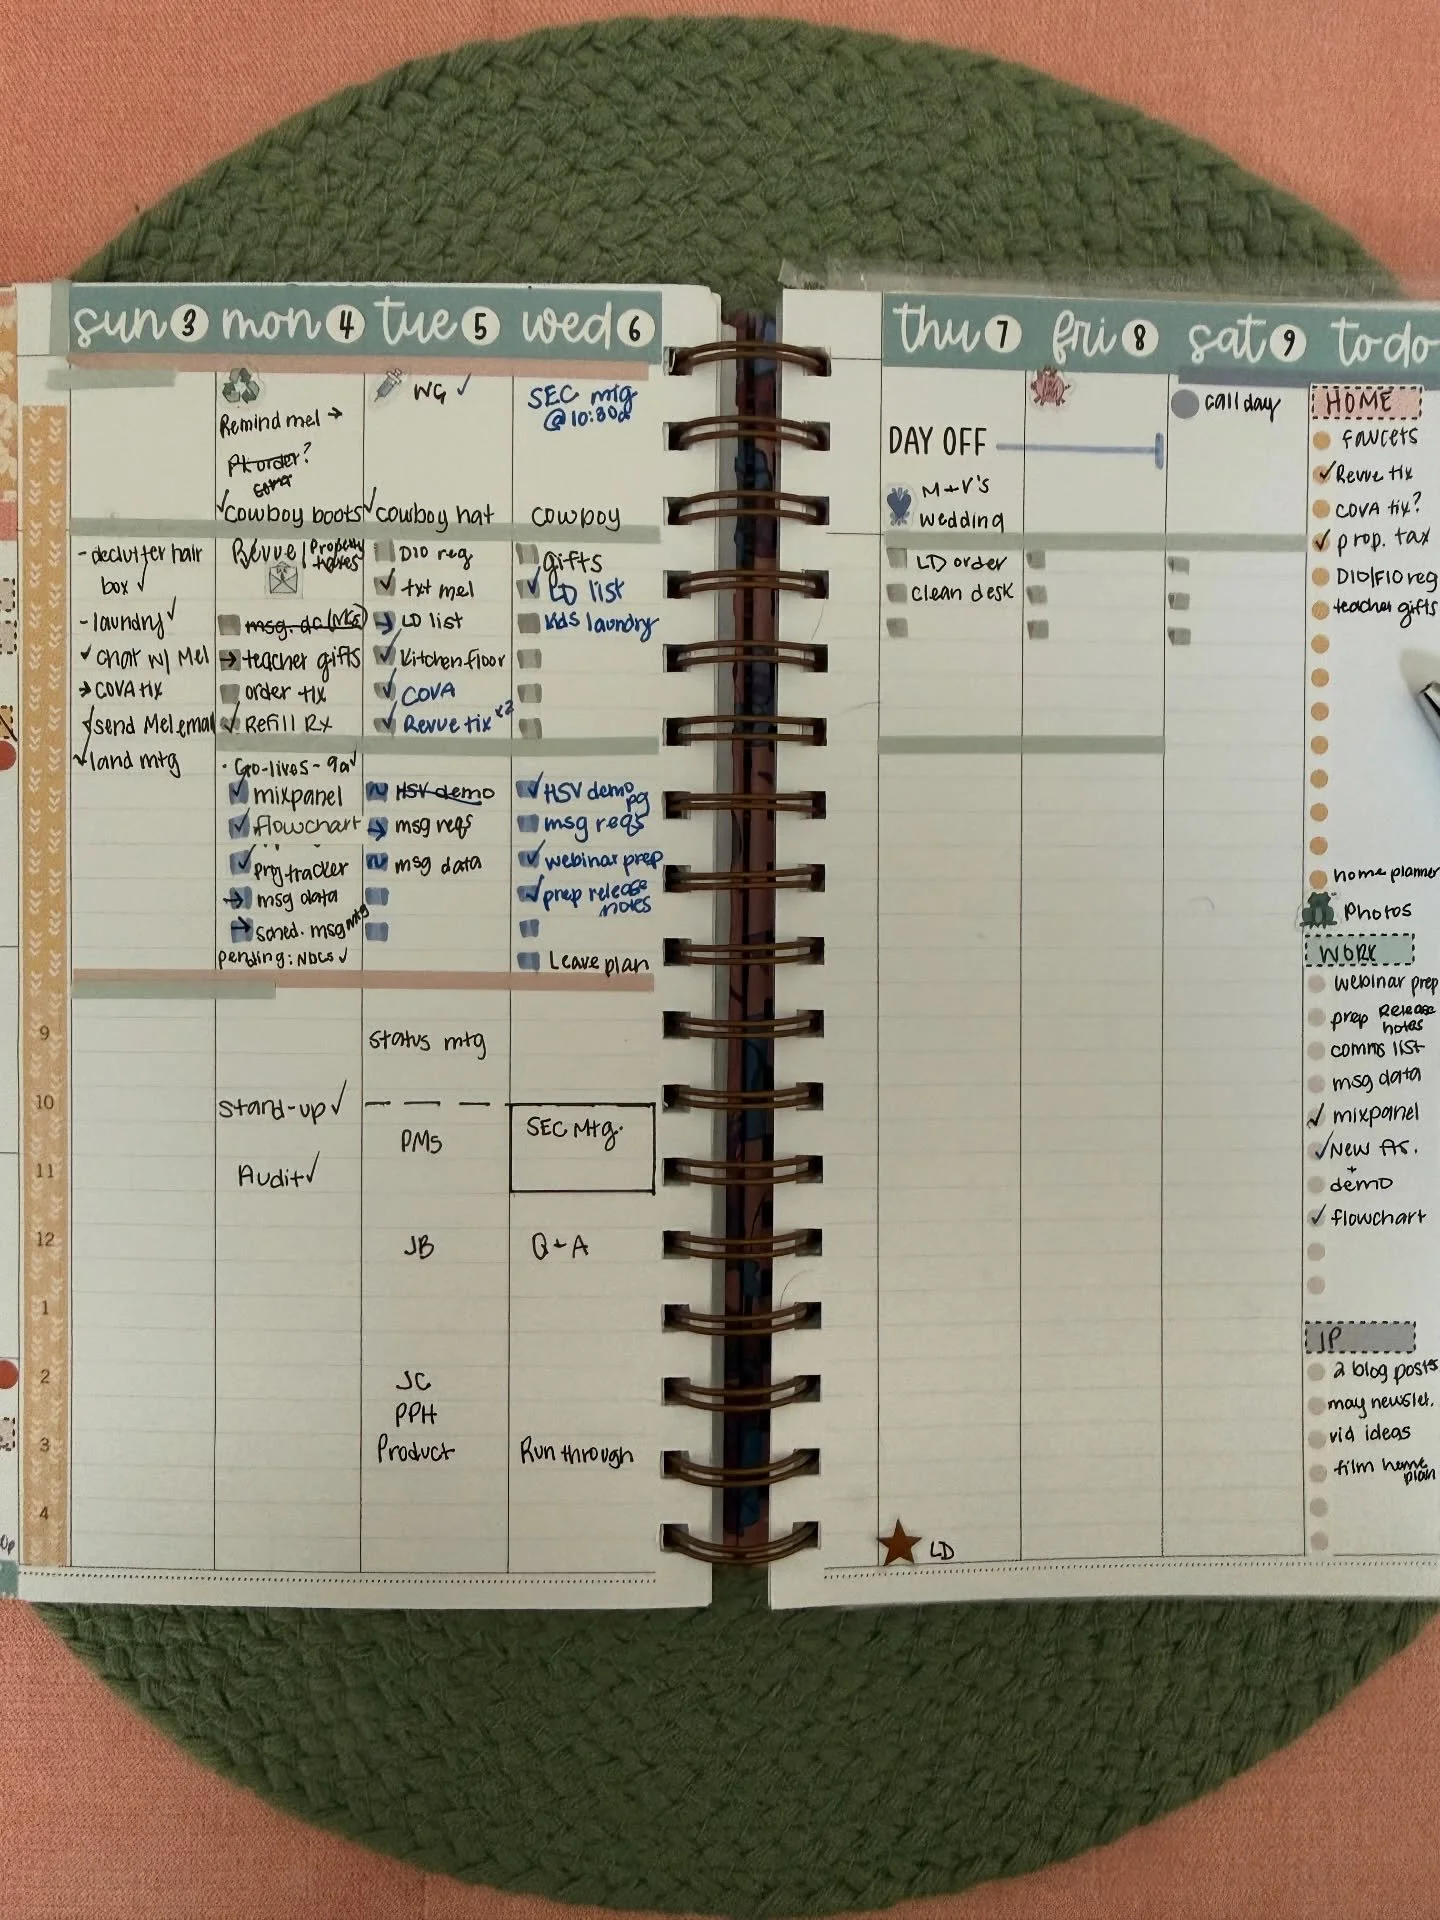 sun 3
mon 4
tue 5
wed 6
thu 7
fri 8
sat 9
to do
- declutter hair
box ✓
- laundry ✓
✓ chat w/ Mel
→ COVA tix
✓ send Mel email
✓ land mtg
Remind mel →
PK order?
✓ cowboy boots
Revue / Property
taxes
msg. dc (NCs)
→ teacher gifts
order tix
✓ Refill Rx
• Go-lives - 9a ✓
✓ mixpanel
✓ flowchart
✓ prjtracker
→ msg data
→ sched. msg mtg
pending: NDCs ✓
Stand-up ✓
Audit ✓
WG ✓
✓ cowboy hat
D10 reg
✓ txt mel
→ LD list
✓ kitchen floor
✓ COVA
✓ Revue tix x2
~ HSV demo
→ msg reqs
~ msg data
Status mtg
PMS
JB
JC
PPH
Product
SEC mtg
@ 10:30a
cowboy
gifts
✓ LD list
kids laundry
✓ HSV demo
pg
msg reqs
✓ webinar prep
✓ prep release
notes
Leave plan
SEC Mtg.
Q + A
Run through
DAY OFF
M + V's
wedding
LD order
clean desk
LD
call day
HOME
faucets
✓ Revue tix
COVA tix?
✓ prop. tax
D10/F10 reg
teacher gifts
home planner
Photos
WORK
webinar prep
prep Release
notes
comms list
msg data
✓ mixpanel
✓ New As.
+
demo
✓ flowchart
IP
2 blog posts
may newslet.
vid ideas
film home
plan
9
10
11
12
1
2
3
4